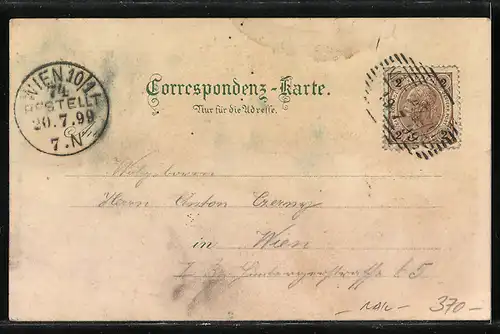 WIEN 10/1
74
BESTELLT
20.7.99
7.N
Correspondenz-Karte.
Nur für die Adresse.
2 2
2 2
Wolgeboren
Herrn Anton Czerny
in Wien
5
370.-